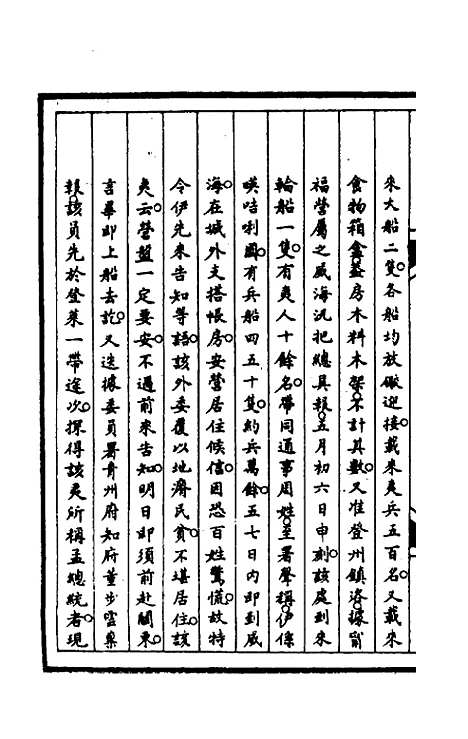 來大船二隻各船均放礮迎接載來夷兵五百名又載來
食物箱盒葢房木料木架不計其數又准登州鎮洛據甯
福營屬之威海汛把總具報五月初六日申刻該處到來
輪船一隻有夷人十餘名帶同通事周姓至署聲稱伊係
暎咭唎國有兵船四五十隻約兵萬餘五七日內即到威
海在城外支搭帳房安營居住候信因恐百姓驚慌故特
令伊先來告知等語該外委覆以地瘠民貧不堪居住該
夷云營盤一定要安不過前來告知明日即須前赴關東
言畢即上船去訖又迭據委員署青州府知府董步雲稟
報該員先於登萊一帶途次探得該夷所稱孟總統者現